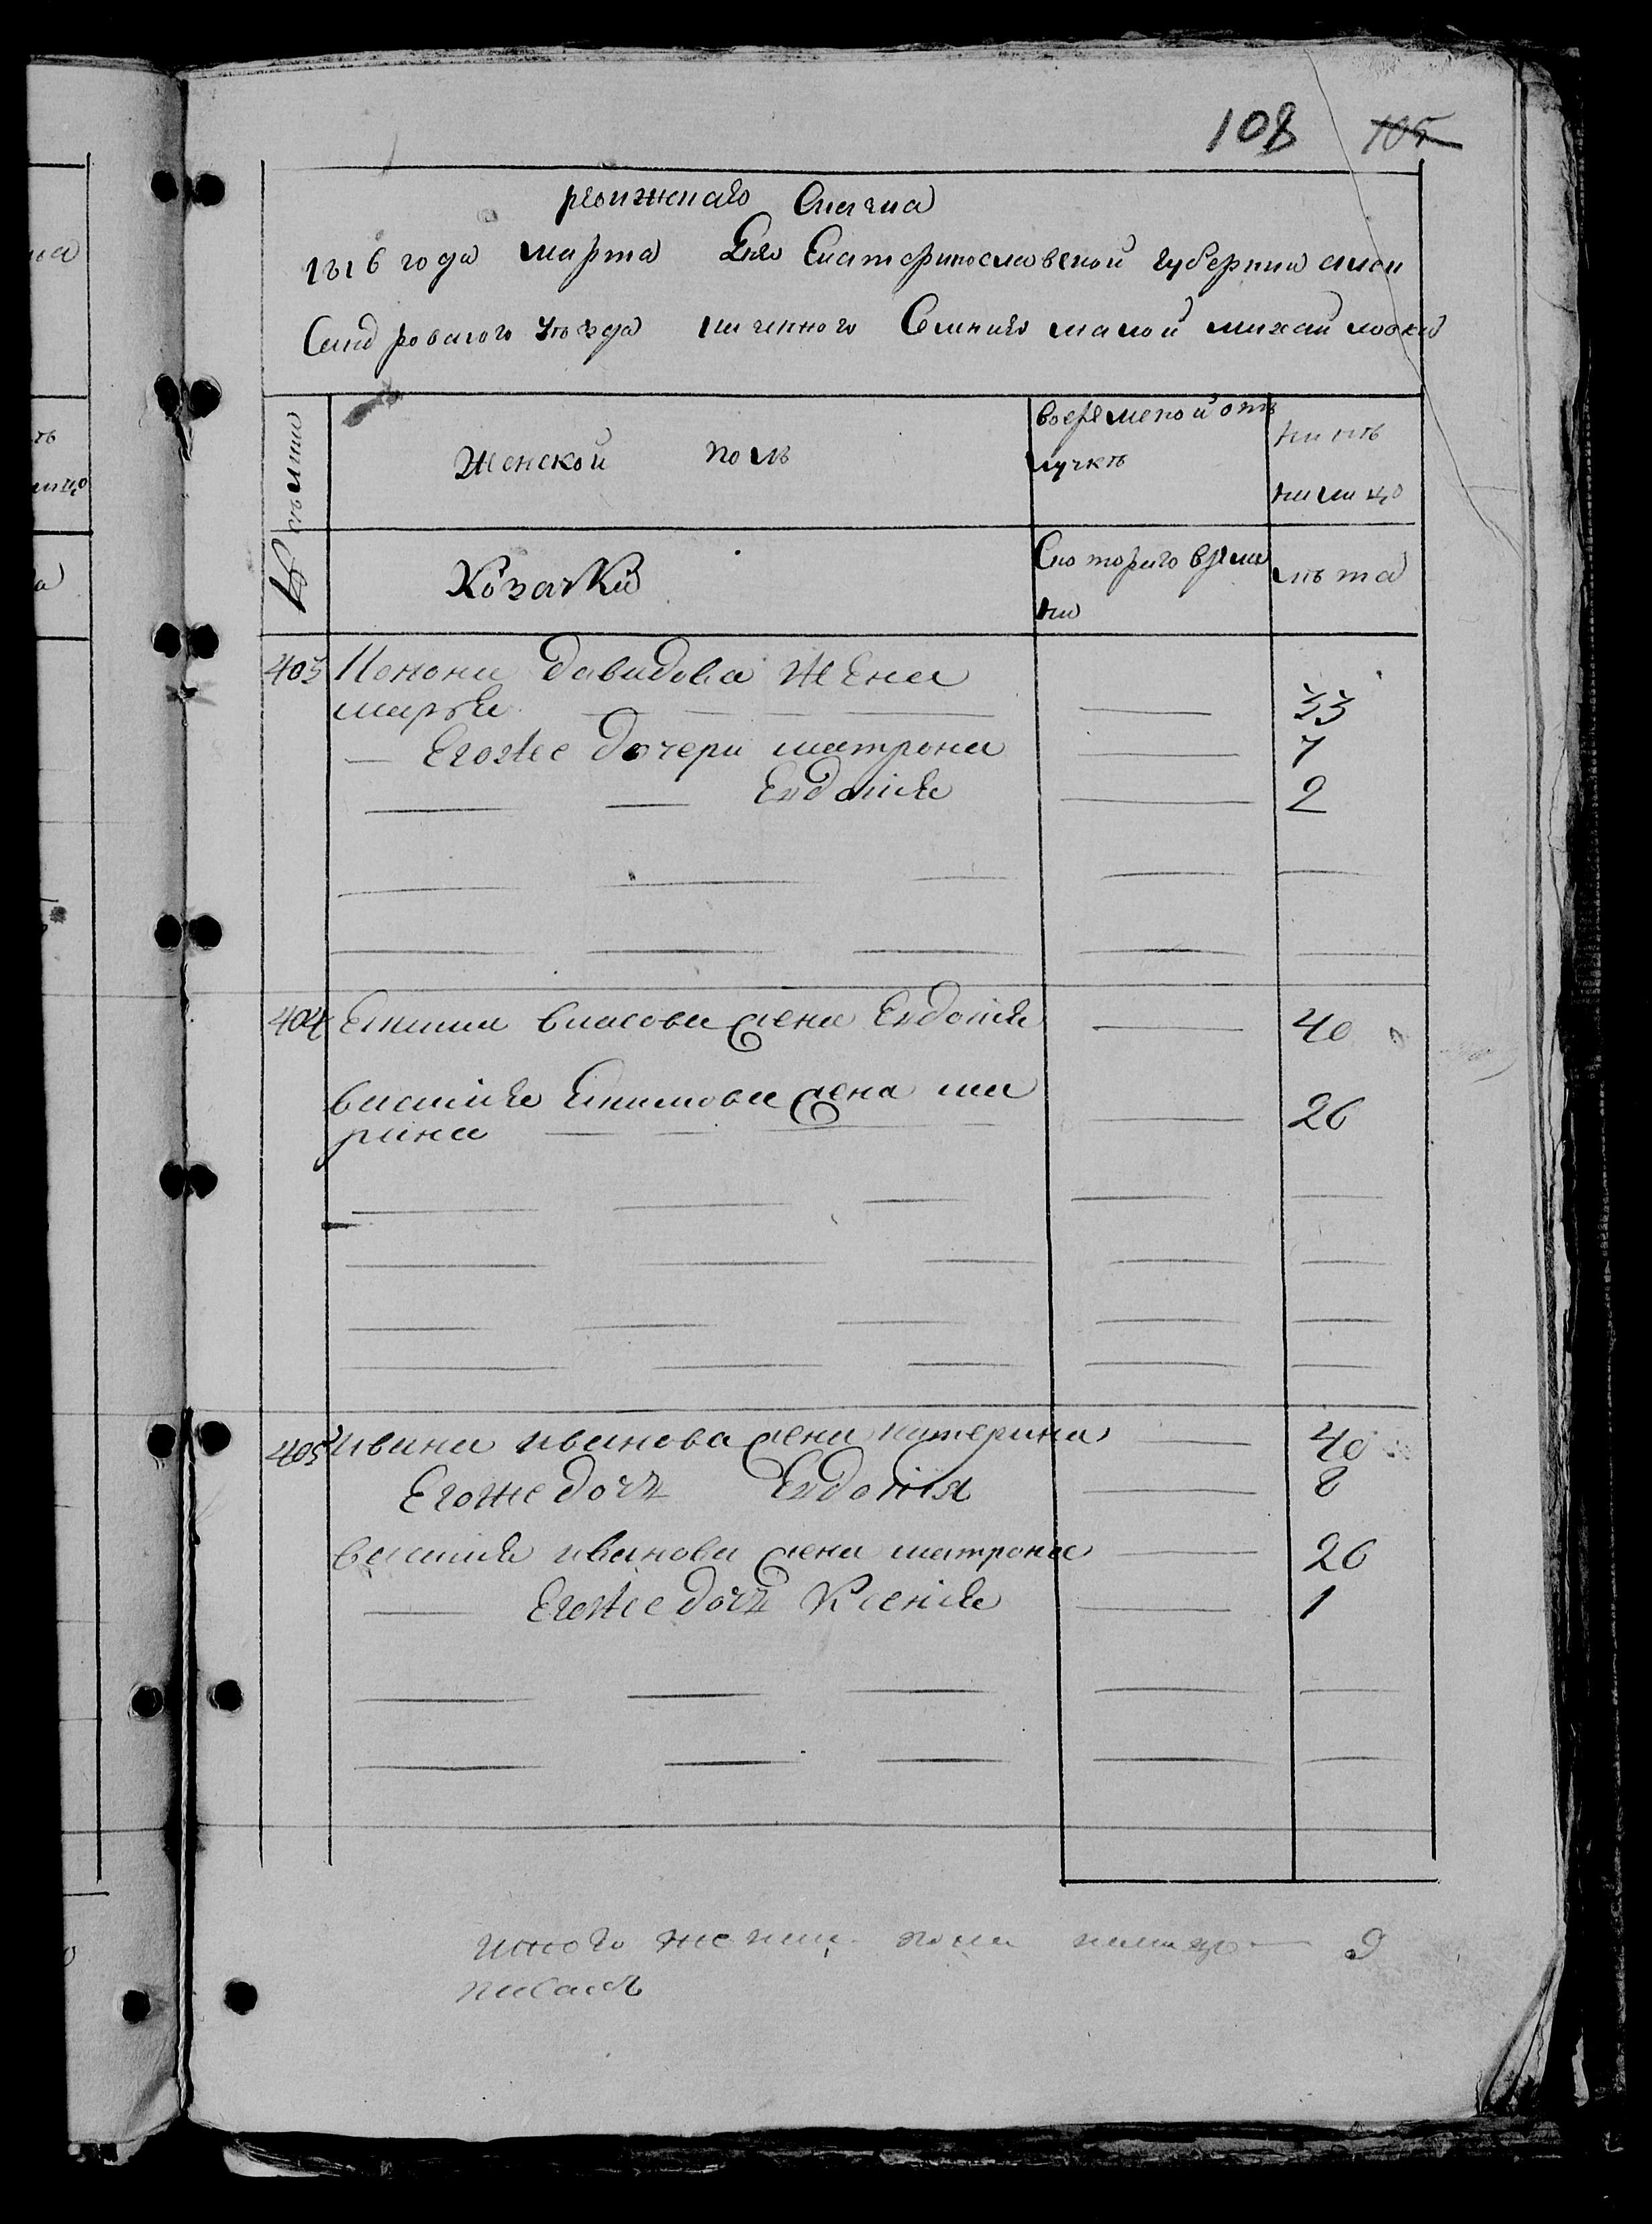 108 105
ревижская Скаска
1816 года марта дня Екатеринославской губернии алек
сандровского уѣзда казенного Селения малой михайловки
№ семьи
Женской полъ
во временой отъ
лучкѣ
ны нѣ
на лицо
Козачки
С которого време
ни
лѣта
403 Конона давидова Жена
марья 33
Егоже дочери матрона 7
Евдокия 2
404 Екима власова жена Евдокия 40
василия Екимова жена ма
рина 26
405 ивана иванова жена катерина 40
Егоже дочь Евдокия 8
василия иванова жена матрона 26
Егоже дочь Ксения 1
итого женска пола налицо 9
писалъ